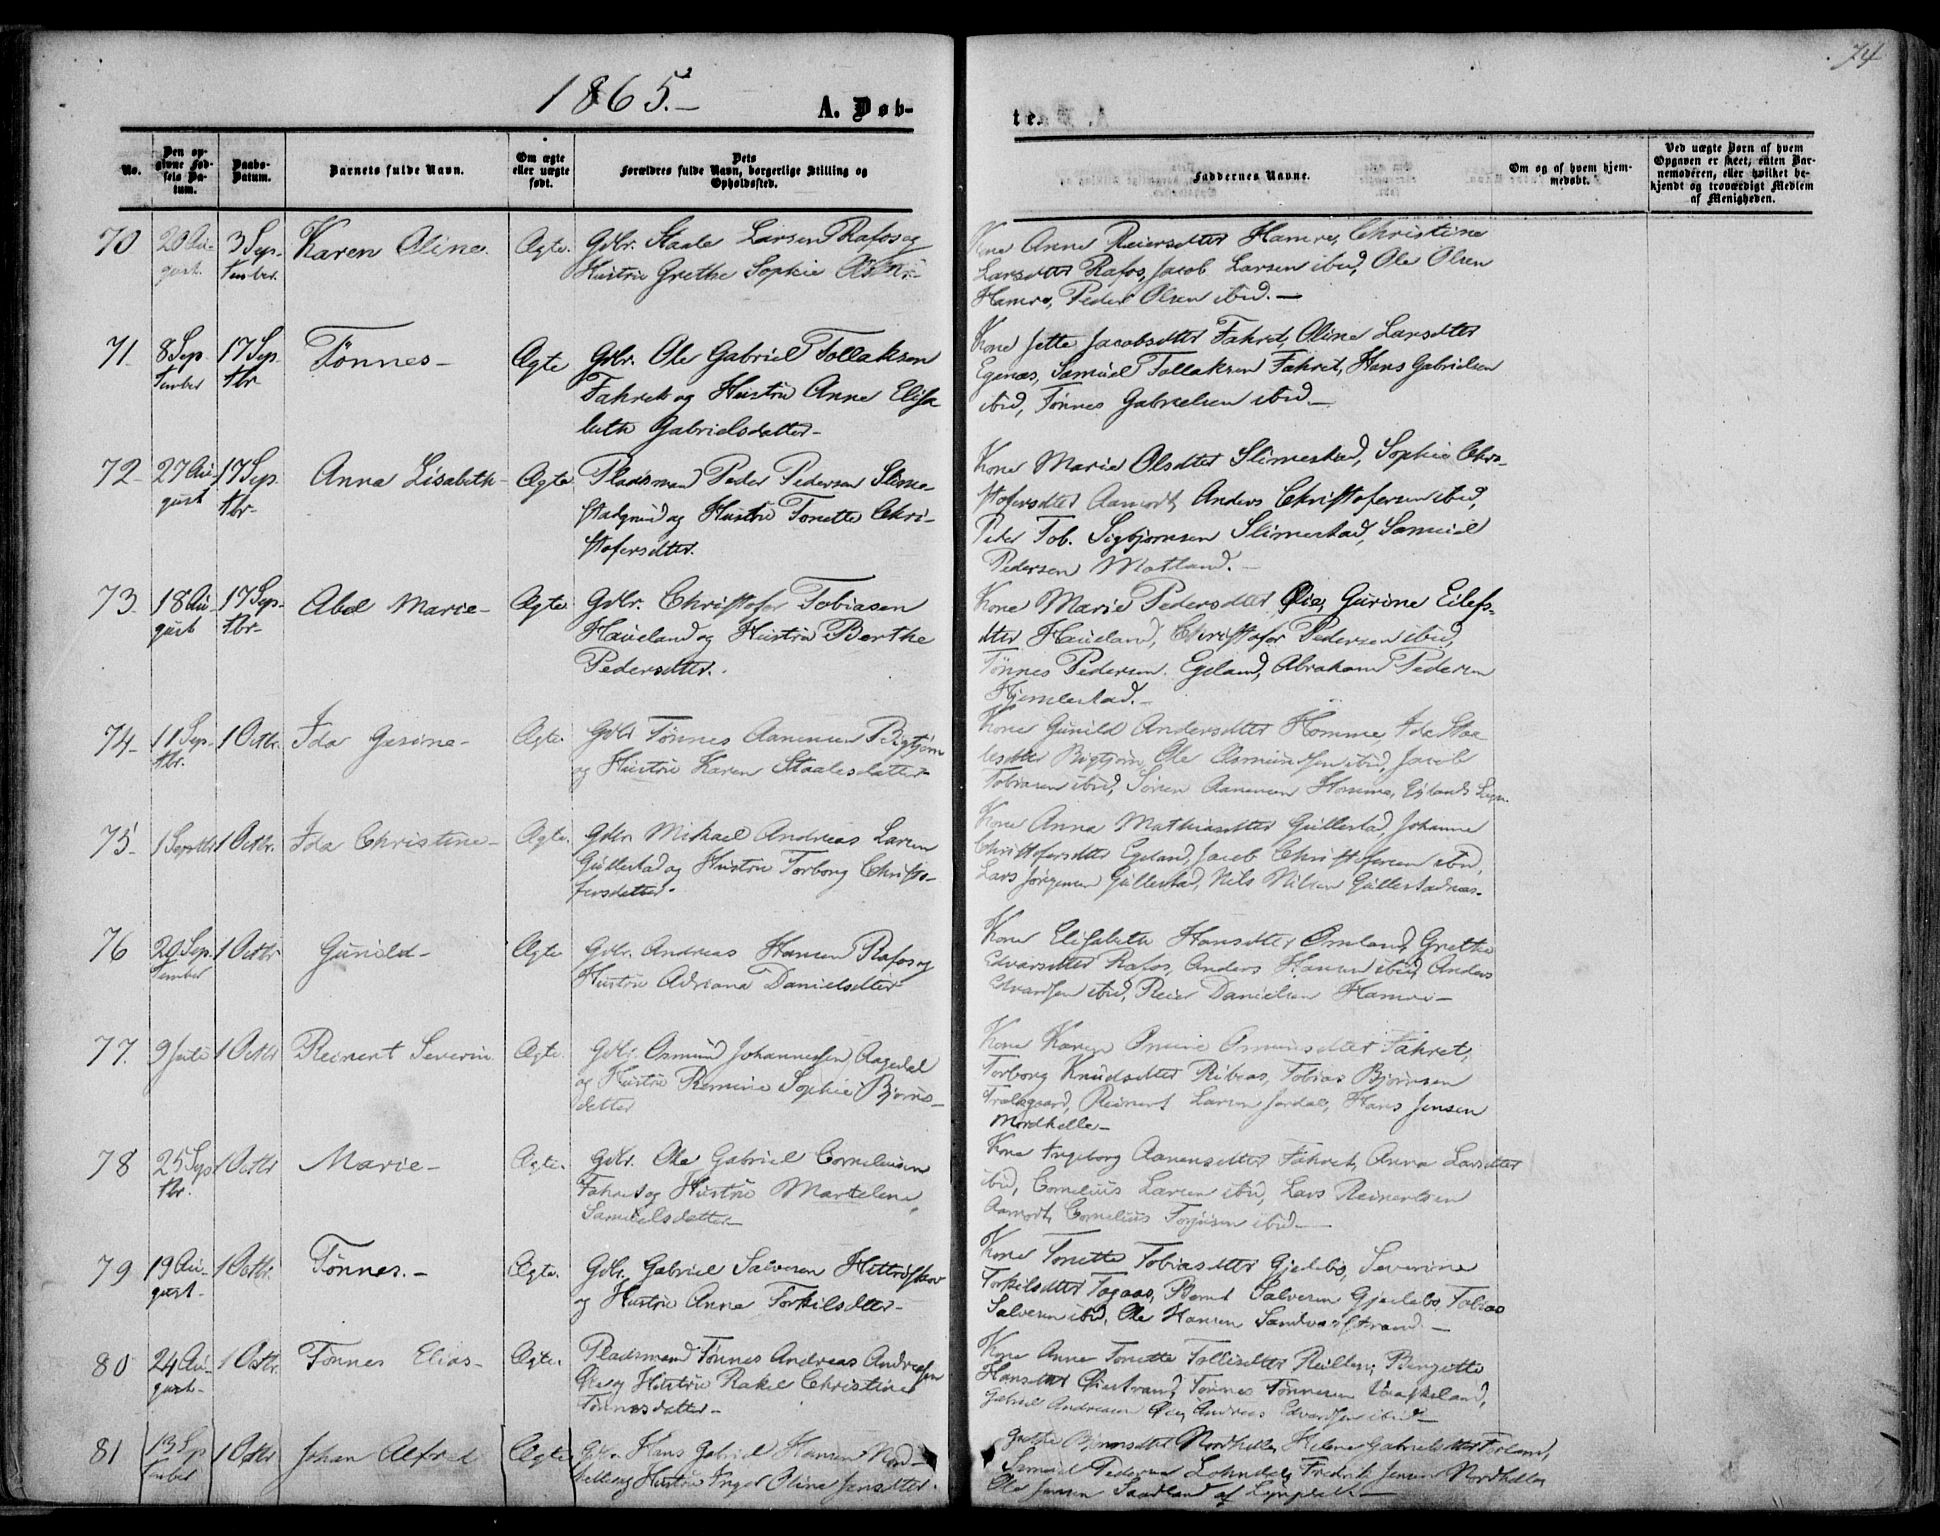 74
1865.-
A. Døb-
te.
No.
Den op-
givne Fød-
sels Da-
tum.
Daabs-
Datum.
Barnets fulde Navn.
Om ægte
eller uægte
født.
Dets
Forældres fulde Navn, borgerlige Stilling og
Opholdssted.
Faddernes Navne.
Om og af hvem hjem-
medøbt.
Ved uægte Børn af hvem
Opgaven er skeet, enten Bar-
nemoderen, eller hvilket be-
kjendt og troværdigt Medlem
af Menigheden.
70 20 Au- 3 Sep- Karen Oline. Ægte. Gdbr. Staale Larsen Rafos og
gust. tember. Hustru Grethe Sophie
Kone Anne Reiersdtter Hamre, Christine
Larsdtter Rafos, Jacob Larsen ibid, Ole Olsen
Hamre, Peder Olsen ibid.-
71. 8 Sep- 17 Sep- Tønnes- Ægte Gdbr. Ole Gabriel Tollaksen
tember tbr- Fahret og Hustru Anne Elisa
beth Gabrielsdatter-
Kone Jette Jacobsdtter Fahret, Oline Larsdtter
Egenæs, Samuel Tollaksen Fahret, Hans Gabrielsen
ibid, Tønnes Gabrielsen ibid-
72- 27 Au- 17 Sep Anna Lisabeth- Ægte Pladsmand Peder Pedersen Slime-
gust tbr- stadgrund og Hustru Tonette Chri-
stofersdtter.
Kone Marie Olsdtter Slimestad, Sophie Chri-
stofersdtter Aamodt, Anders Christofersen ibid,
Peder Tob. Sigbjørnsen Slimestad, Samuel
Pedersen Motland.-
73 18 Au- 17 Sep- Abel Marie- Ægte Gdbr. Christofer Tobiasen
gust tbr- Haueland og Hustru Berthe
Pedersdtter.
Kone Marie Pedersdtter Øie, Gurine Eilefs-
dtter Haueland, Christofer Pedersen ibid,
Tønnes Pedersen Egeland, Abraham Pedersen
Hjemlestad.-
74- 11 Sep- 1 Octbr. Ida Gesine- Ægte. Gdbr Tønnes Aanensen Bigtjøn
tbr. og Hustru Karen Staalesdatter-
Kone Gunild Andersdtter Homme, Ida Staa
lesdtter Bigtjøn, Ole Osmundsen ibid, Jacob
Tobiasen ibid, Søren Aanensen Homme,
75- 1 Septbr 1 Octbr. Ida Christine- Ægte. Gdbr Mikael Andreas Larsen
Gullestad og Hustru Torborg Christo-
fersdatter.
Kone Anna Mathiasdtter Gullestad, Johanne
Christofersdtter Egeland, Jacob Christofersen ibid,
Lars Jørgensen Gullestad, Nils Nilsen Gullestadnæs-
76 20 Sep- 1 Octbr Gunild- Ægte Gdbr. Andreas Hansen Rafos og
tember Hustru Adriana Danielsdtter
Kone Elisabeth Hansdtter Omland, Grethe
Edvarsdtter Rafos, Anders Hansen ibid, Anders
Edvardsen ibid, Reier Danielsen Hamre-
77. 9 Juli 1 Octbr Reinert Severin Ægte. Gdbr. Osmund Johannessen Aagedal
og Hustru Romine Sophie Bjørns-
datter
Kone Karen Osmundsdtter Fahret,
Torborg Knudsdtter Ribeas, Tobias Bjørnsen
Trælsgaard, Reinert Larsen Jerdal, Hans Jensen
Nordhelle-
78 25 Sep 1 Octbr Marie- Ægte. Gdbr. Ole Gabriel Corneliusen
tbr. Fahret og Hustru Martelene
Samuelsdatter-
Kone Ingeborg Aanensdtter Fahret, Anna Larsdtter
ibid, Cornelius Larsen ibid, Lars Reinertsen
Aamodt, Cornelius Torjusen ibid-
79 19 Au- 1 Octbr. Tønnes.- Ægte. Gdbr. Gabriel Salvesen
gust- og Hustru Anne Torkilsdtter-
Kone Tonette Tobiasdtter Gjelebo, Severine
Torkilsdtter Tagaas, Bernt Salvesen Gjelebo, Tobias
Salvesen ibid, Ole Hansen Sandvarstrand.-
80 24 Au- 1 Octbr. Tønnes Elias- Ægte. Pladsmand Tønnes Andreas Andreassen
gust- Øie og Hustru Rakel Christine
Tønnesdatter-
Kone Anne Tonette Tollisdtter Bergitte
Hansdtter Øiestrand, Tønnes Tønnesen
Gabriel Andreasen Øie, Andreas Edvardsen ibid-
81 13 Sep 1 Octbr Johan Alfred Ægte Gdbr. Hans Gabriel Hansen Nord-
tember helle og Hustru Inger Oline Jensdtter.
Grethe Bjørnsdtter Nordhelle, Helene Gabrielsdtter Torland,
Samuel Pedersen Lohndal, Fredrik Jensen Nordhelle,
Ole Jensen